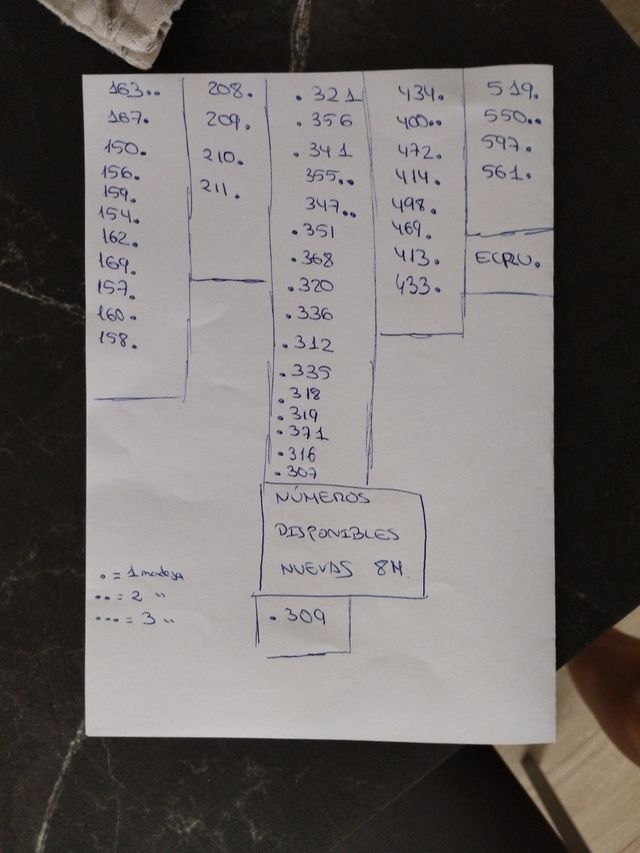 163..
167.
150.
156.
159.
154.
162.
169.
157.
160.
158.
208.
209.
210.
211.
. 321
. 356
. 341
355..
347..
. 351
. 368
. 320
. 336
. 312
. 335
. 318
. 319
. 371
. 316
. 307
434.
400..
472.
414.
498.
469.
413.
433.
519.
550..
597.
561.
ECRU.
NÚMEROS
DISPONIBLES
NUEVAS 8M.
. 309
. = 1 madeja
.. = 2 "
... = 3 "